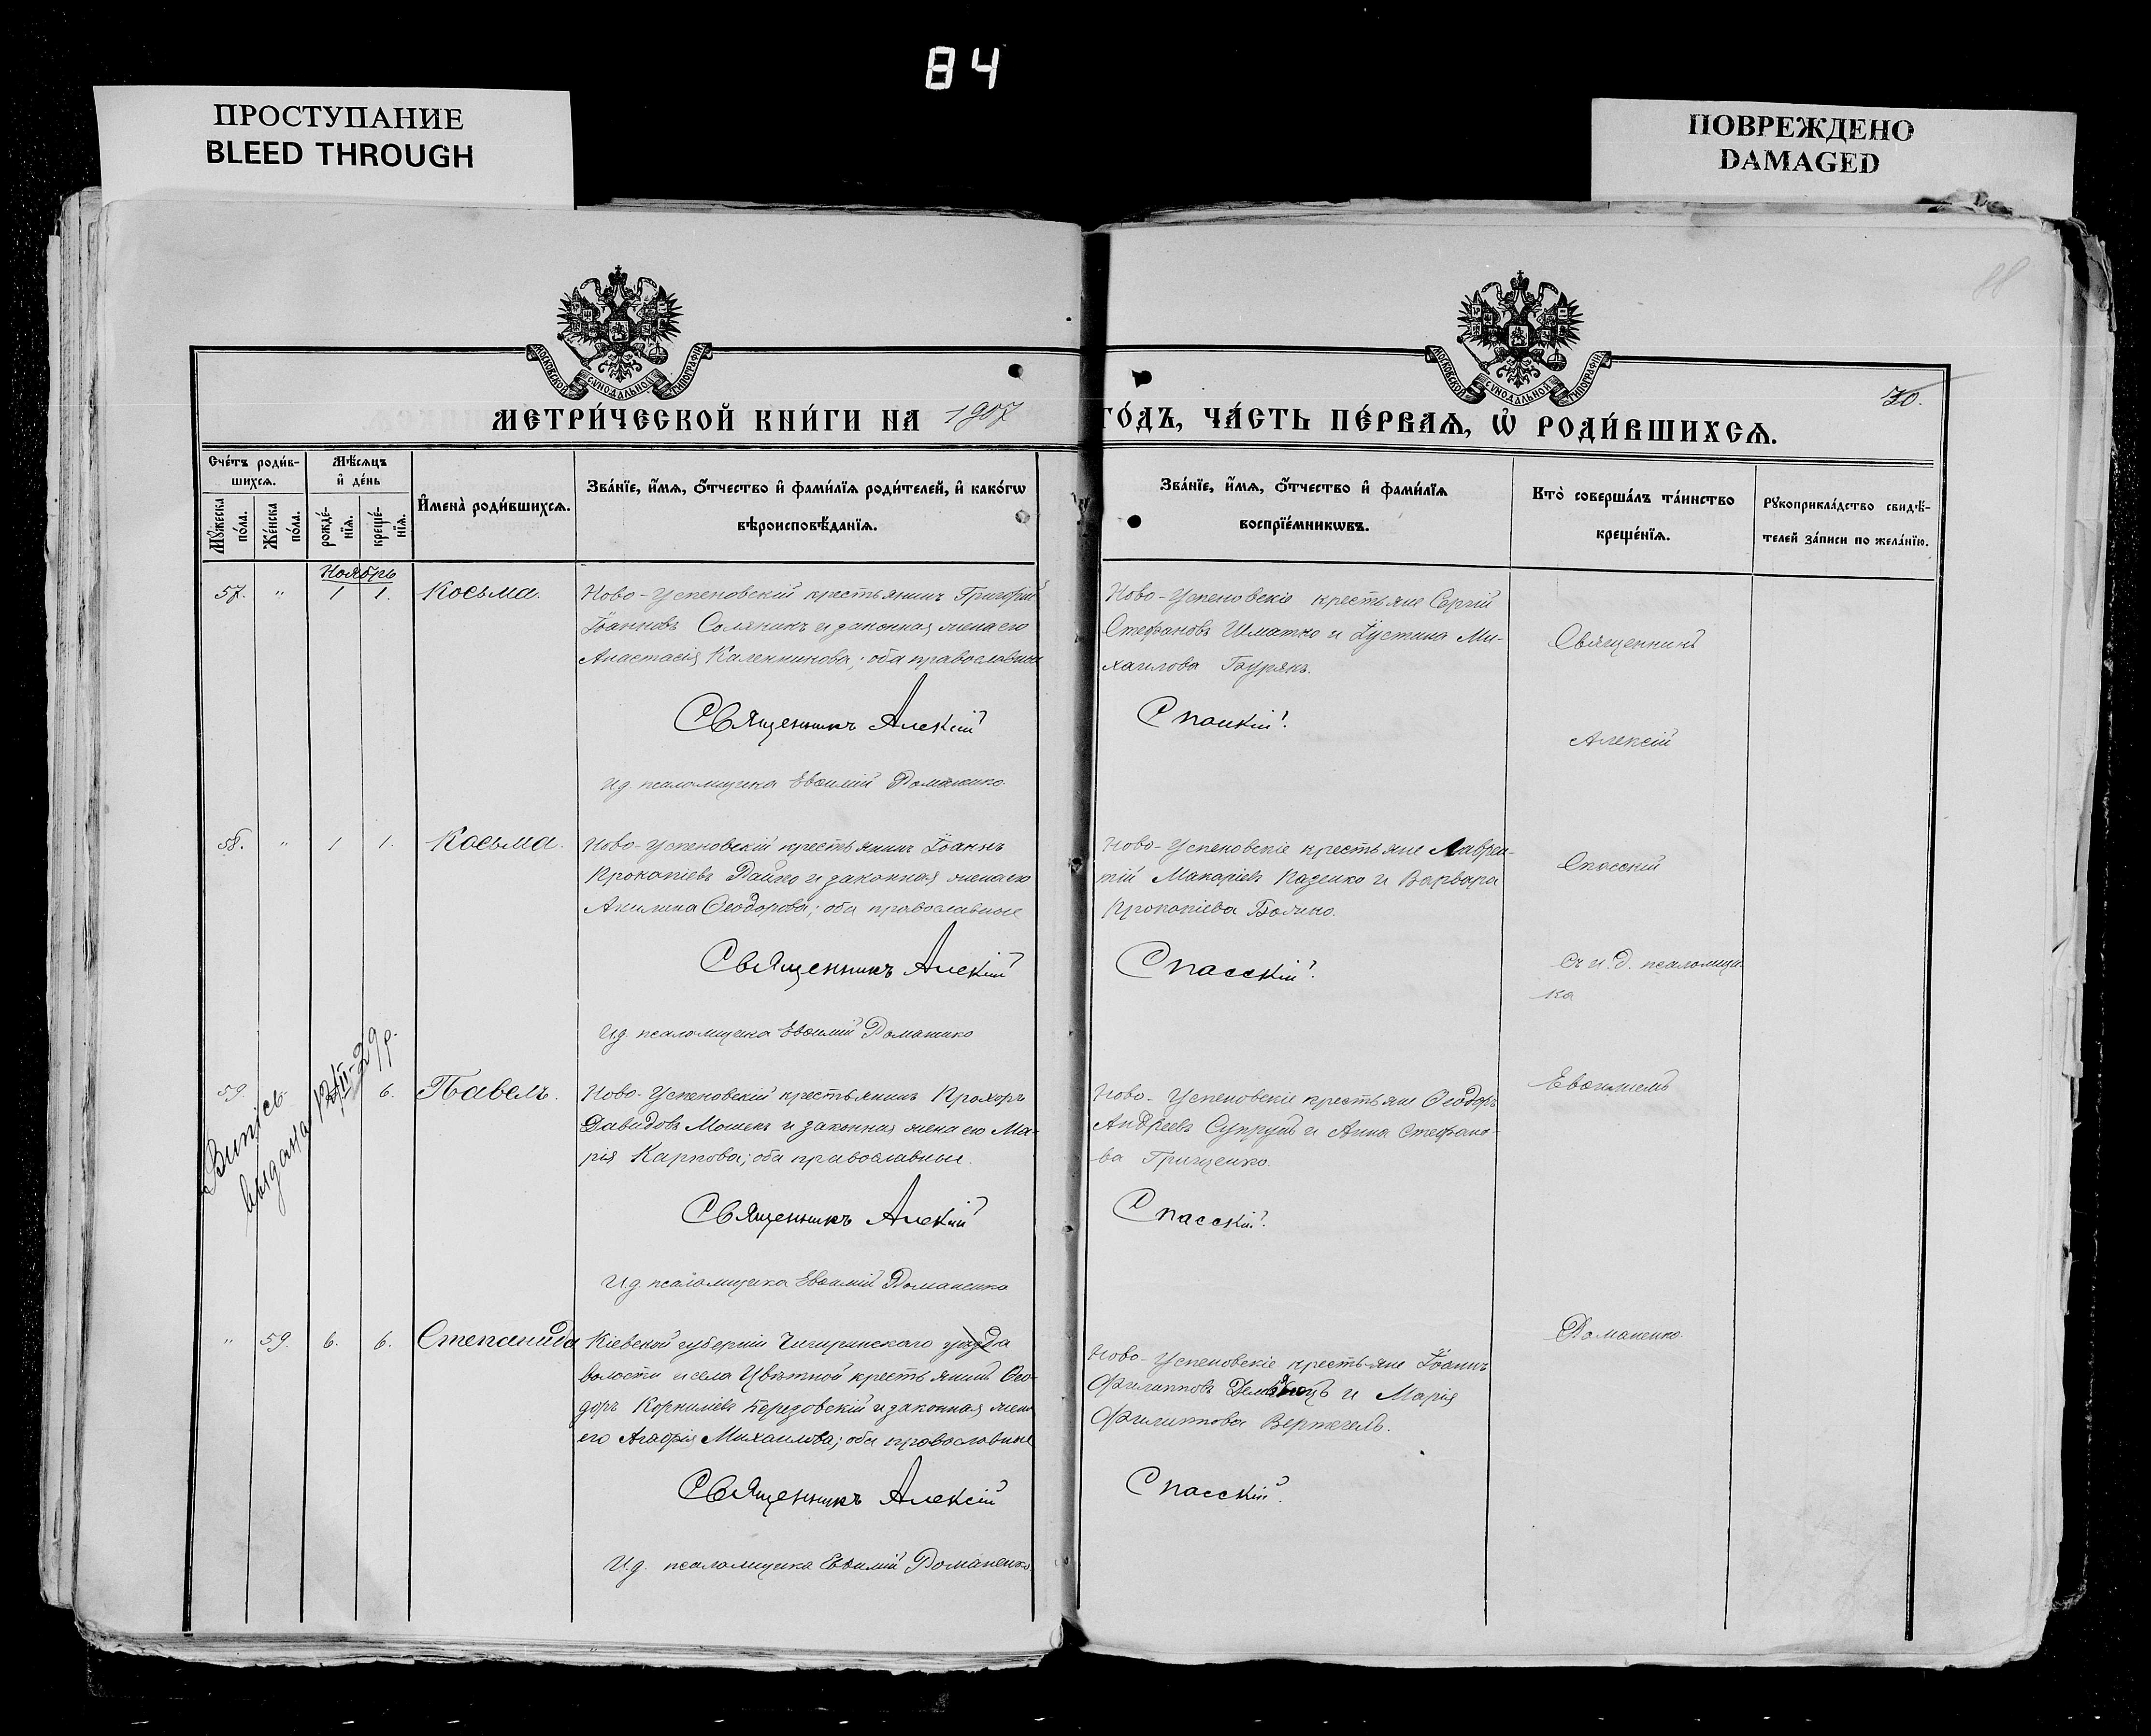 84
ПРОСТУПАНИЕ
BLEED THROUGH
ПОВРЕЖДЕНО
DAMAGED
88
МОСКОВСКОЙ СѴНОДАЛЬНОЙ ТИПОГРАФІИ
МОСКОВСКОЙ СѴНОДАЛЬНОЙ ТИПОГРАФІИ
70.
МЕТРИ́ЧЕСКОЙ КНИ́ГИ НА 1907 ГО́ДЪ, ЧА́СТЬ ПЕ́РВАѦ, Ѡ҆ РОДИ́ВШИХСѦ.
Сче́тъ роди́в-
шихсѧ.
Мѣ́сѧцъ
и҆ де́нь
Мꙋ́жеска
по́ла.
Же́нска
по́ла.
рожде́-
нїѧ.
креще́-
нїѧ.
И҆мена̀ роди́вшихсѧ.
Зва́нїе, и҆́мѧ, ѻ҆́тчество и҆ фами́лїѧ роди́телей, и҆ како́гѡ
вѣроисповѣ́данїѧ.
Зва́нїе, и҆́мѧ, ѻ҆́тчество и҆ фами́лїѧ
воспрїе́мникѡвъ.
Кто̀ соверша́лъ та́инство
креще́нїѧ.
Рꙋкоприкла́дство свидѣ́-
телей за́писи по жела́нїю.
Ноябрь
57. " 1 1. Косьма. Ново-Успеновскій крестьянинъ Григорій
Іоанновъ Соляникъ и законная жена его
Анастасія Каленникова; оба православные
Священникъ Алексій
И.д. псаломщика Евѳимій Романенко.
Ново-Успеновскіе крестьяне Сергій
Стефановъ Шматко и Іустина Ми-
хаилова Бурякъ.
Спасскій.
Священникъ
Алексій
58. " 1 1. Косьма. Ново-Успеновскій крестьянинъ Іоаннъ
Прокопіевъ Райко и законная жена его
Акилина Ѳеодорова; оба православные
Священникъ Алексій
И.д. псаломщика Евѳимій Романенко
Ново-Успеновскіе крестьяне Лаврен-
тій Макаріевъ и Варвара
Прокопіева
Спасскій.
Спасскій
съ и.д. псаломщи-
ка
59. 6. Павелъ. Ново-Успеновскій крестьянинъ Прохоръ
Давидовъ Мошекъ и законная жена его Ма-
рія Карпова; оба православные.
Священникъ Алексій
И.д. псаломщика Евѳимій Романенко
Випісь
видана
Ново-Успеновскіе крестьяне Ѳеодоръ
Андреевъ Супрунъ и Анна Стефано-
ва Грищенко.
Спасскій.
Евѳиміемъ
" 59. 6. 6. Степанида Кіевской губерніи Чигиринскаго уезда
волости и села Цвѣтной крестьянинъ Ѳео-
доръ Корниліевъ Березовскій и законная жена
его Агафія Михаилова; оба православные
Священникъ Алексій
И.д. псаломщика Евѳимій Романенко
Ново-Успеновскіе крестьяне Іоаннъ
Филипповъ и Марія
Филиппова Вертегелъ.
Спасскій.
Романенко.